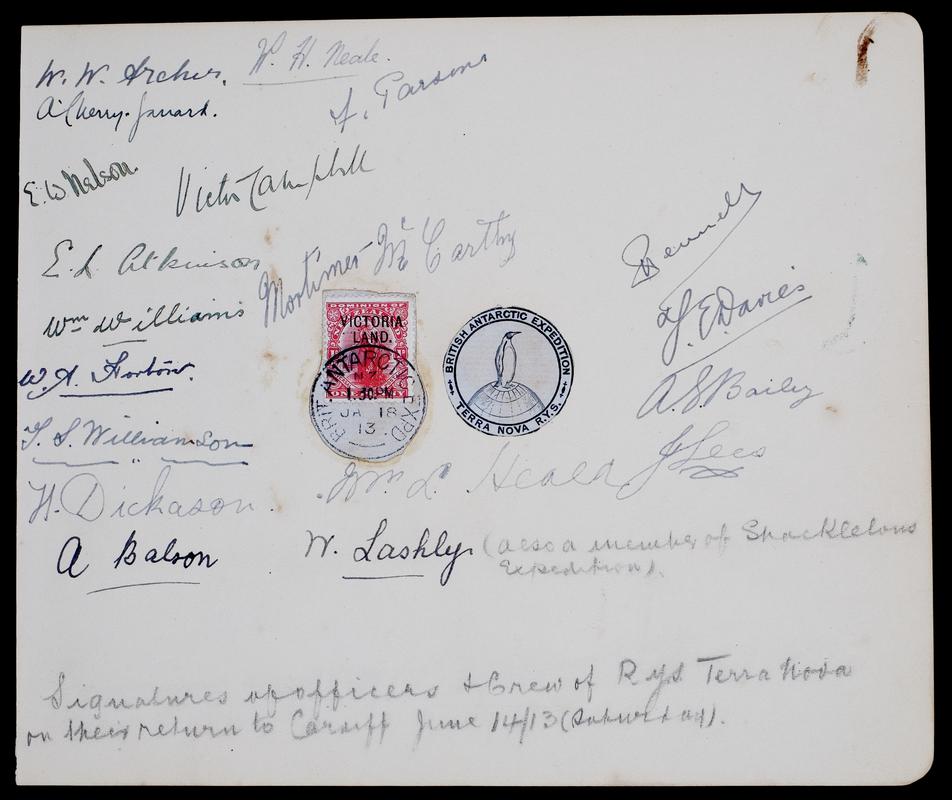 W. W. Archer.
W. H. Neale.
A. Cherry-Garrard.
F. Parsons
E. W Nelson.
Victor Campbell
E. L Atkinson
Mortimer Mc Carthy
Rennick
Wm Williams
F. E. Davies
W. A. Horton.
A. S. Bailey
T. S. Williamson
H. Dickason.
Wm. L. Heald
J Lees
A Balson
W. Lashly (also a member of Shackletons
Expedition).
DOMINION OF
VICTORIA
LAND.
BRIT. ANTARCTIC EXPD
N.Z.
1.30PM
JA 18
13
BRITISH ANTARCTIC EXPEDITION
TERRA NOVA R.Y.S.
Signatures of officers & Crew of R.Y.S Terra Nova
on their return to Cardiff June 14/13 (Saturday).